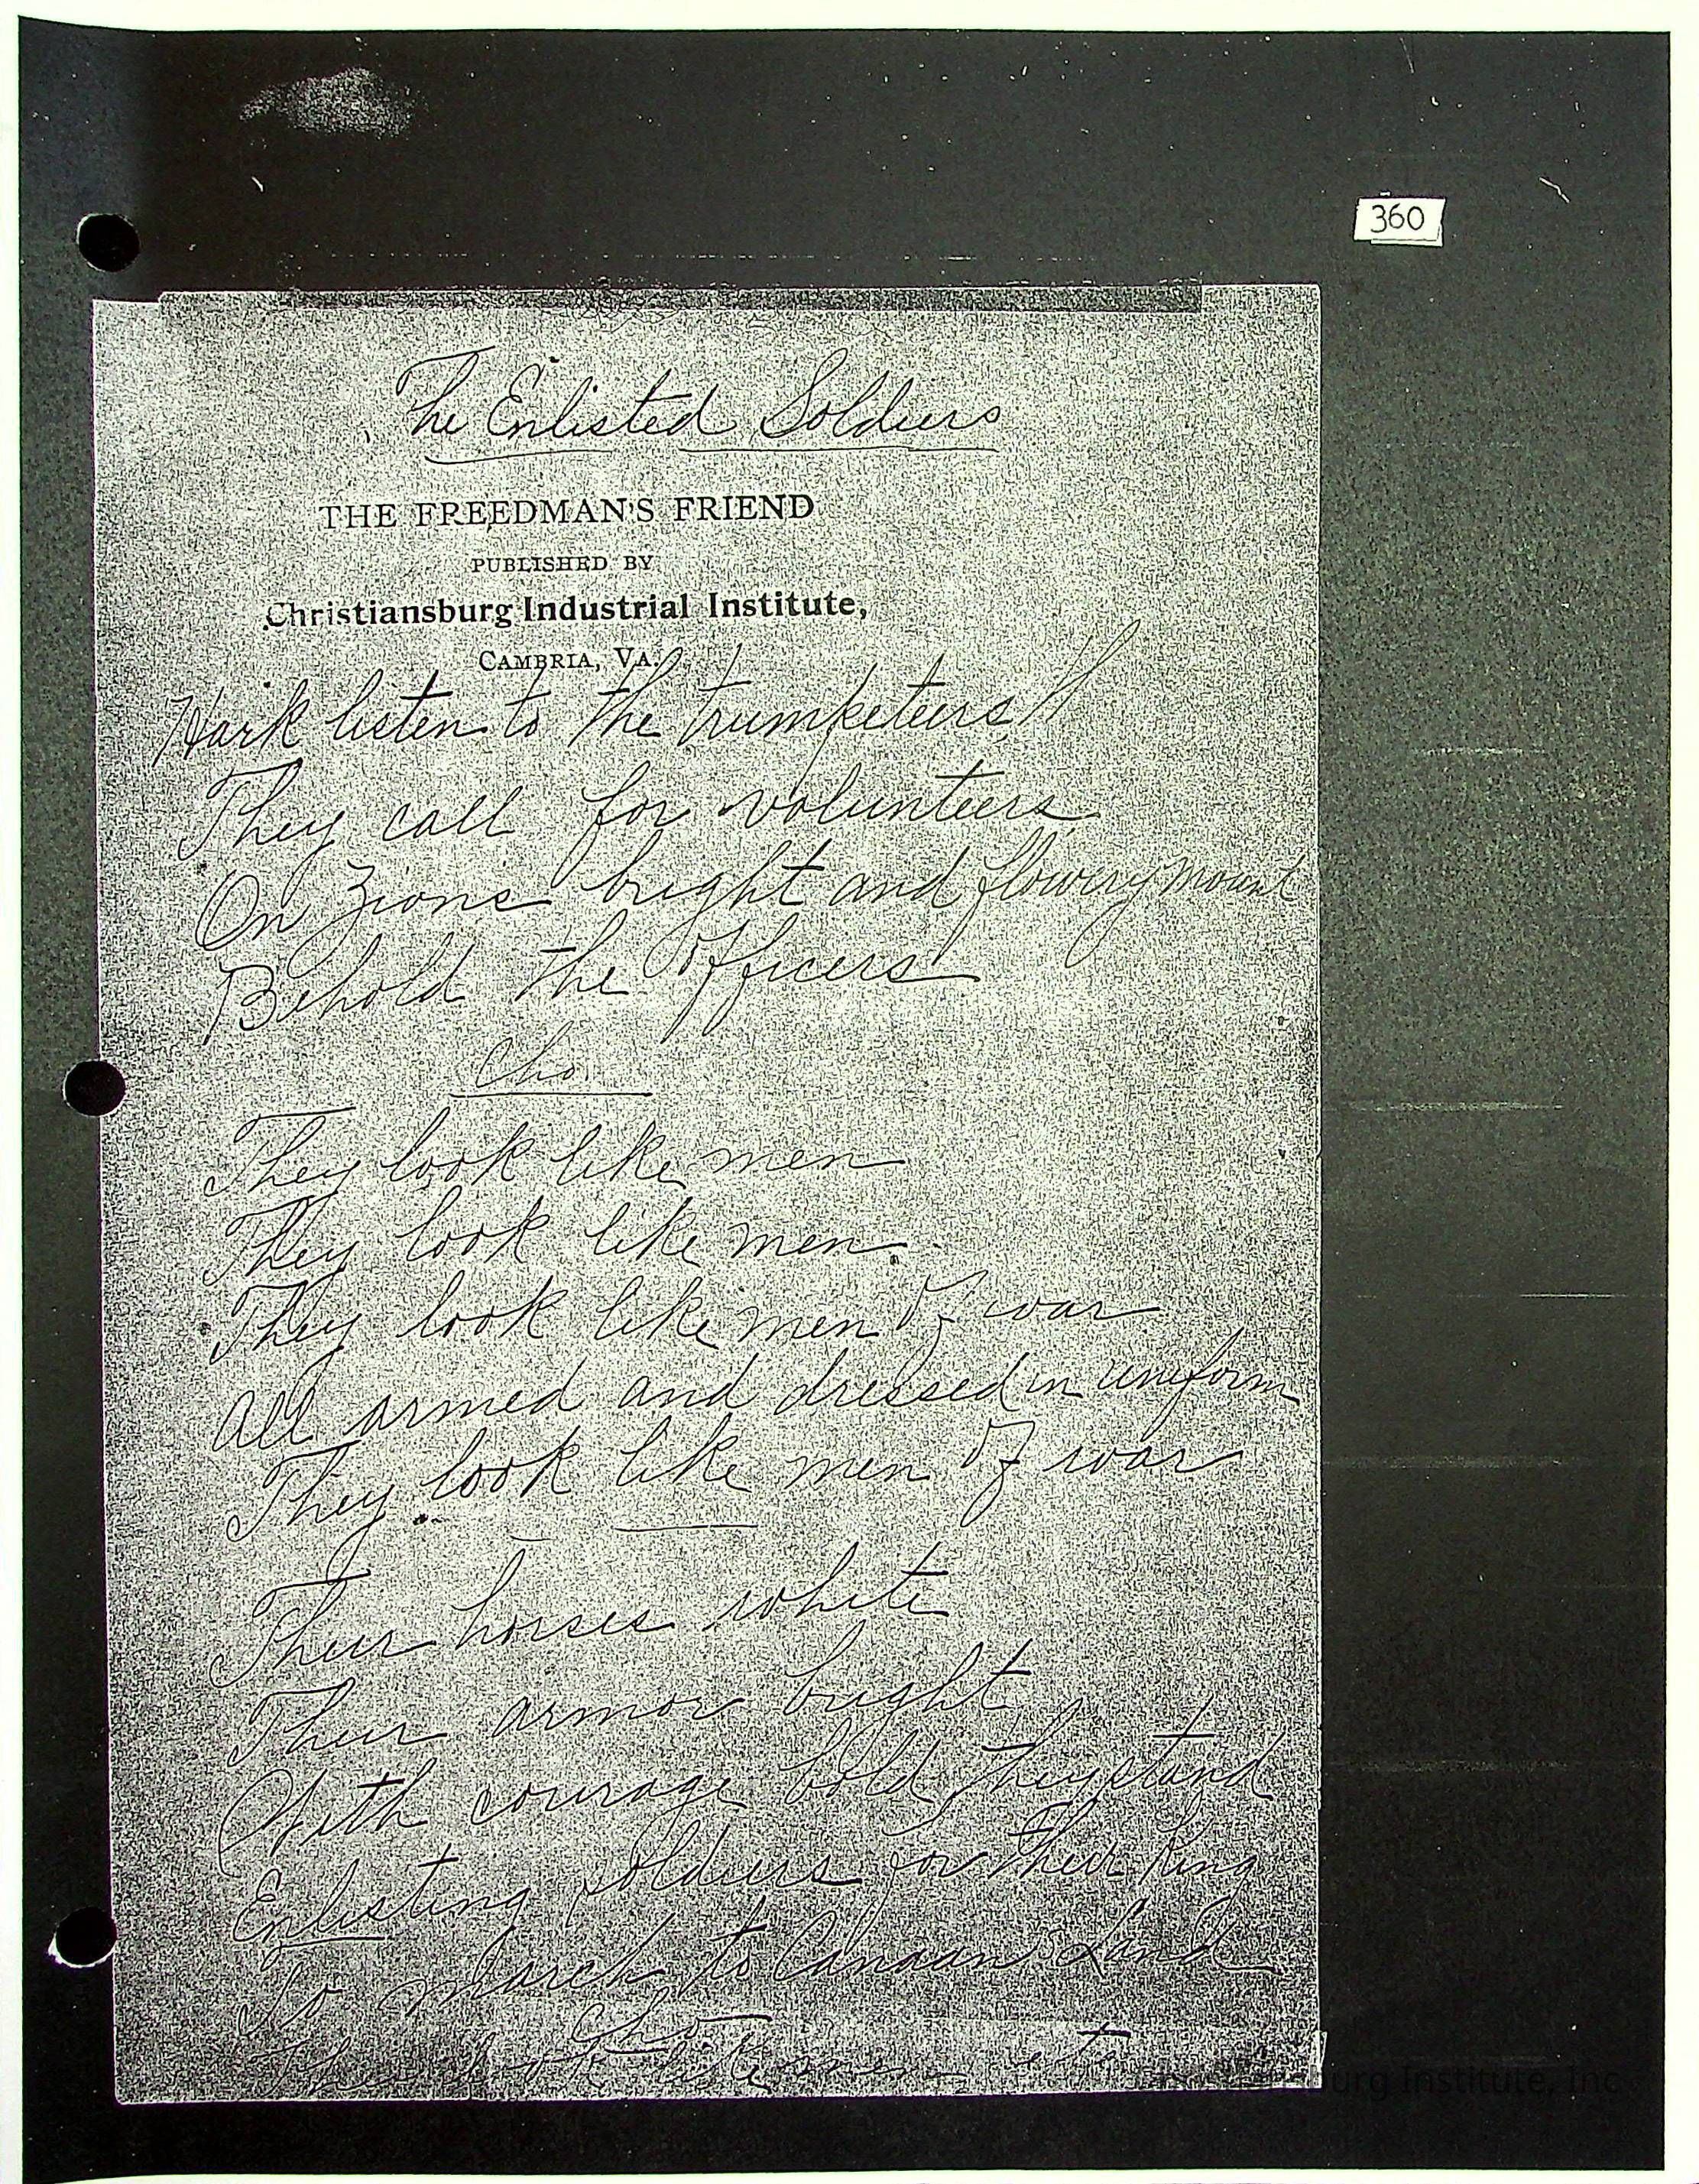 360
The Enlisted Soldiers
THE FREEDMAN'S FRIEND
PUBLISHED BY
Christiansburg Industrial Institute,
CAMBRIA, VA.
Hark listen to the trumpeters
They call for volunteers
On Zions bright and flowery mount
Behold the officers
Cho
They look like men
They look like men
They look like men of war
All armed and dressed in uniform
They look like men of war
Their horses white
Their armor bright
With courage bold they stand
Enlisting soldiers for their King
To march to Canaan's Land
Cho
They look like men etc
Christiansburg Institute, Inc